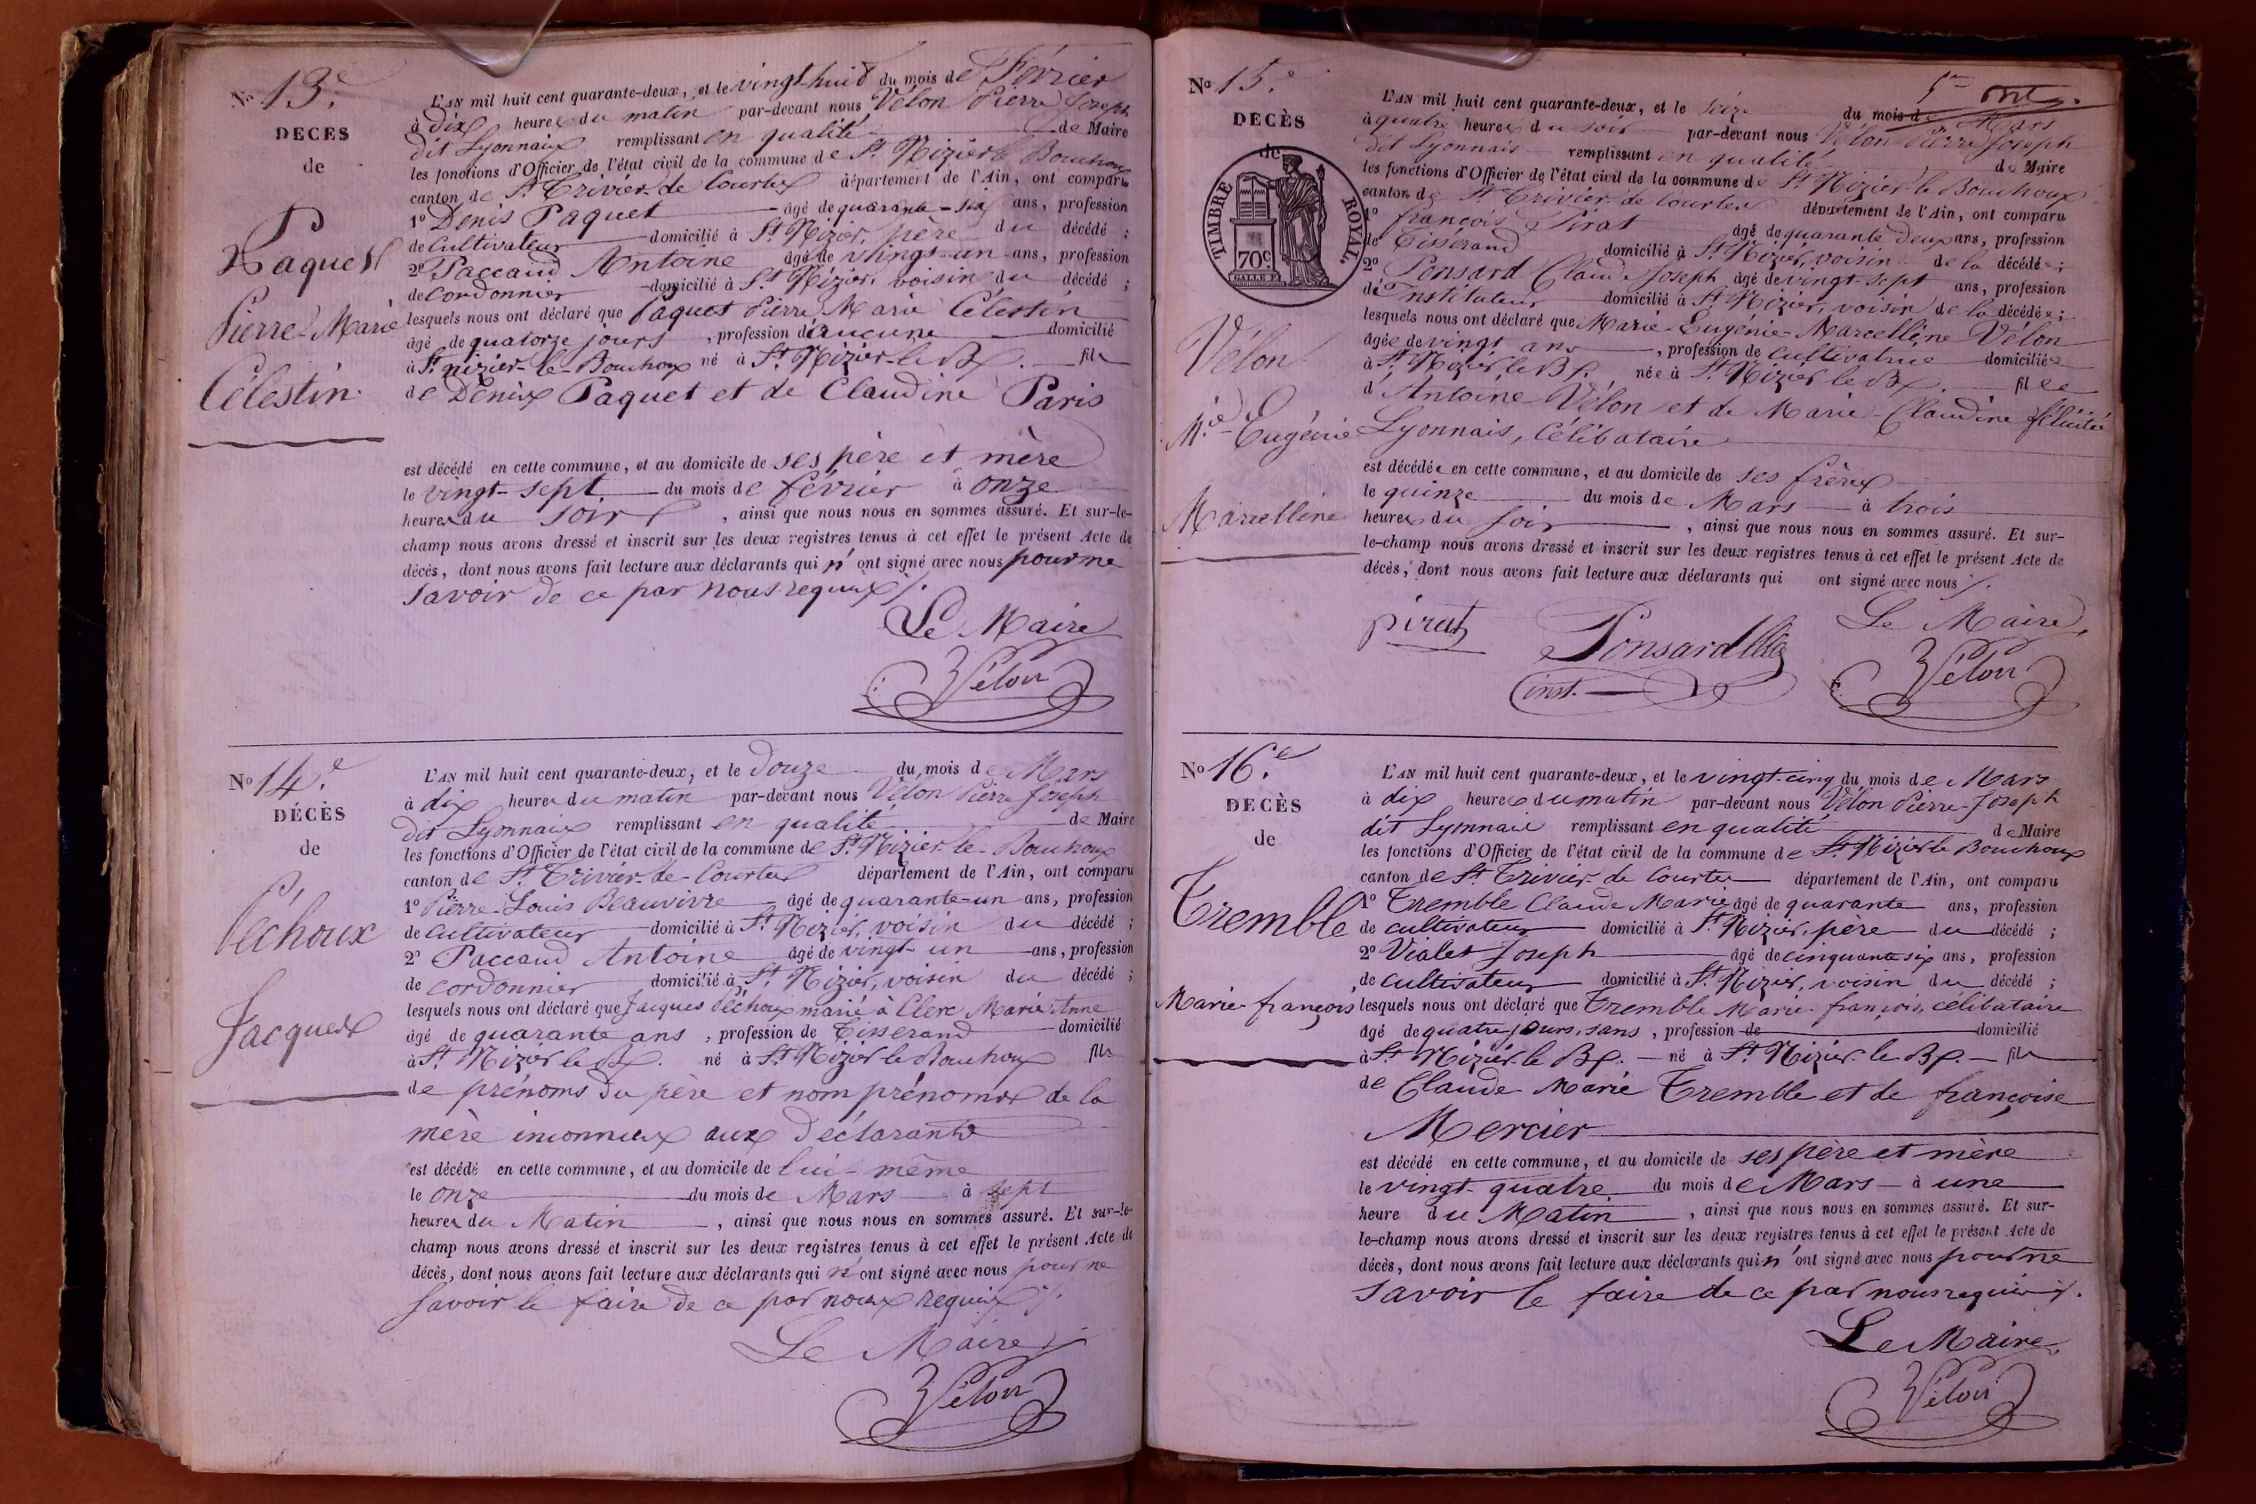 No 13.e
DECES
de
Paquet
Pierre Marie
Célestin.
L'AN mil huit cent quarante-deux, et le vingt-huit du mois de Février
à dix heures du matin par-devant nous Vélon Pierre Joseph
dit Lyonnais remplissant en qualité de Maire
les fonctions d'Officier de l'état civil de la commune de St Nizier le Bouchoux
canton de St Trivier-de-Courtes département de l'Ain, ont comparu
1o Denis Paquet âgé de quarante-six ans, profession
de cultivateur domicilié à St Nizier, père du décédé ;
2o Paccaud Antoine âgé de vingt-un ans, profession
de cordonnier domicilié à St Nizier, voisin du décédé ;
lesquels nous ont déclaré que Paquet Pierre Marie Célestin
âgé de quatorze jours, profession d'aucune domicilié
à St nizier-le-Bouchoux né à St Nizier-le-Bx. fils
de Denis Paquet et de Claudine Paris
est décédé en cette commune, et au domicile de ses père et mère
le vingt-sept du mois de février à onze
heures du soir, ainsi que nous nous en sommes assuré. Et sur-le-
champ nous avons dressé et inscrit sur les deux registres tenus à cet effet le présent Acte de
décès, dont nous avons fait lecture aux déclarants qui n'ont signé avec nous pour ne
savoir de ce par nous requis ./.
Le Maire
Vélon
No 14.e
DÉCÈS
de
Péchoux
Jacques
L'AN mil huit cent quarante-deux, et le douze du mois de Mars
à dix heures du matin par-devant nous Vélon Pierre Joseph
dit Lyonnais remplissant en qualité de Maire
les fonctions d'Officier de l'état civil de la commune de St Nizier-le-Bouchoux
canton de St Trivier-de-Courtes département de l'Ain, ont comparu
1o Pierre-Louis Beauvivre âgé de quarante-un ans, profession
de cultivateur domicilié à St Nizier, voisin du décédé ;
2o Paccaud Antoine âgé de vingt-un ans, profession
de cordonnier domicilié à St Nizier, voisin du décédé ;
lesquels nous ont déclaré que Jacques Péchoux marié à Clerc Marie-Anne
âgé de quarante ans, profession de Tisserand domicilié
à St Nizier le Bx. né à St Nizier le Bouchoux fils
de prénoms du père et nom prénoms de la
mère inconnus aux déclarants
est décédé en cette commune, et au domicile de lui-même
le onze du mois de Mars à sept
heures du Matin, ainsi que nous nous en sommes assuré. Et sur-le-
champ nous avons dressé et inscrit sur les deux registres tenus à cet effet le présent Acte de
décès, dont nous avons fait lecture aux déclarants qui n'ont signé avec nous pour ne
savoir le faire de ce par nous requis ./.
Le Maire
Vélon
No 15.e
DECÈS
de
TIMBRE ROYAL.
70c
Vélon
M.ie Eugénie
Marcelline
L'AN mil huit cent quarante-deux, et le seize du mois de Mars
à quatre heures du soir par-devant nous Vélon Pierre Joseph
dit Lyonnais remplissant en qualité de Maire
les fonctions d'Officier de l'état civil de la commune de St Nizier le Bouchoux
canton de St Trivier de Courtes département de l'Ain, ont comparu
1o françois Pirat âgé de quarante deux ans, profession
de Tisserand domicilié à St Nizier, voisin de la décédée ;
2o Ponsard Claude Joseph âgé de vingt-sept ans, profession
d'Instituteur domicilié à St Nizier, voisin de la décédée ;
lesquels nous ont déclaré que Marie-Eugénie-Marcelline Vélon
âgée de vingt ans, profession de cultivatrice domiciliée
à St Nizier, le Bx. née à St Nizier le Bx. fille
d'Antoine Vélon et de Marie-Claudine félicité
Lyonnais, Célibataire
est décédée en cette commune, et au domicile de ses frères
le quinze du mois de Mars à trois
heures du soir, ainsi que nous nous en sommes assuré. Et sur-
le-champ nous avons dressé et inscrit sur les deux registres tenus à cet effet le présent Acte de
décès, dont nous avons fait lecture aux déclarants qui ont signé avec nous ./.
pirat
Ponsard
inst.
Le Maire,
Vélon
No 16.e
DECÈS
de
Tremble
Marie-françois
L'AN mil huit cent quarante-deux, et le vingt-cinq du mois de Mars
à dix heures du matin par-devant nous Vélon Pierre-Joseph
dit Lyonnais remplissant en qualité de Maire
les fonctions d'Officier de l'état civil de la commune de St Nizier le Bouchoux
canton de St Trivier-de Courtes département de l'Ain, ont comparu
1o Tremble Claude Marie âgé de quarante ans, profession
de cultivateur domicilié à St Nizier, père du décédé ;
2o Vialet Joseph âgé de cinquante six ans, profession
de cultivateur domicilié à St Nizier, voisin du décédé ;
lesquels nous ont déclaré que Tremble Marie-françois, célibataire
âgé de quatre jours, sans, profession de domicilié
à St Nizier le Bx. né à St Nizier le Bx. fils
de Claude Marie Tremble et de françoise
Mercier
est décédé en cette commune, et au domicile de ses père et mère
le vingt-quatre du mois de Mars à une
heure du Matin, ainsi que nous nous en sommes assuré. Et sur-
le-champ nous avons dressé et inscrit sur les deux registres tenus à cet effet le présent Acte de
décès, dont nous avons fait lecture aux déclarants qui n'ont signé avec nous pour ne
savoir le faire de ce par nous requis ./.
Le Maire,
Vélon